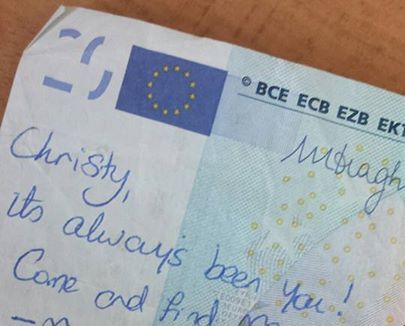 © BCE ECB EZB EKT
Christy,
its always been you!
Come and find